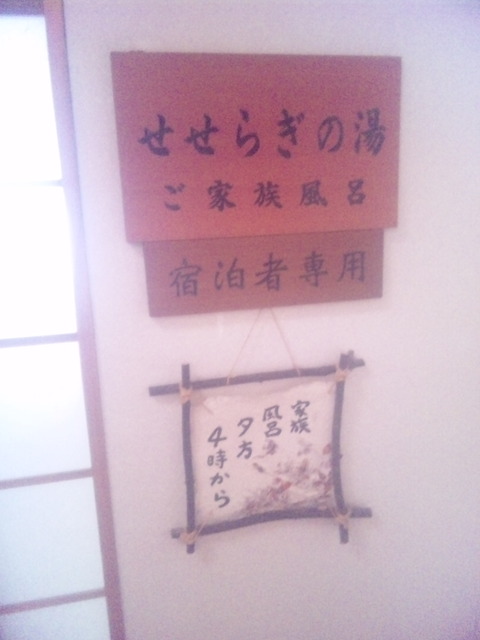 せせらぎの湯
ご家族風呂
宿泊者専用
家族
風呂は
夕方
4時から